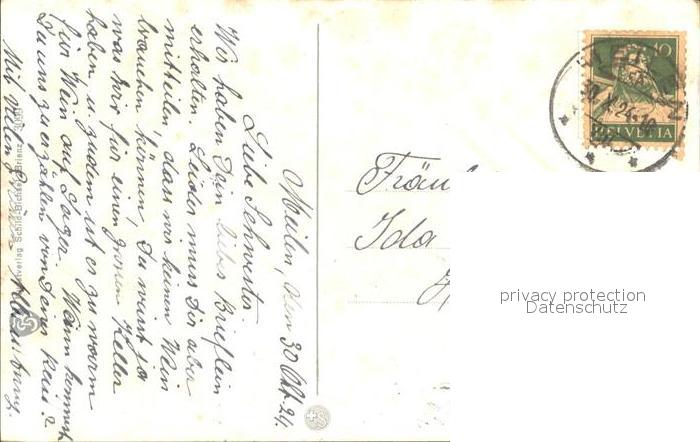 Meilen, den 30 Okt. 24.
Liebe Schwester
Wir haben Dein liebes Brieflein
erhalten. Leider muss Dir aber
mitteilen, dass wir keinen Wein
brauchen können, Du weist ja
was wir für einen grossen Keller
haben, u. zudem ist es zu warm
für Wein auf Lager. Wann kommst
Du uns zu erzählen von Deiner Reise?
Mit vielen
Fräul
Ida
10
HELVETIA
30.X.24.10
privacy protection
Datenschutz